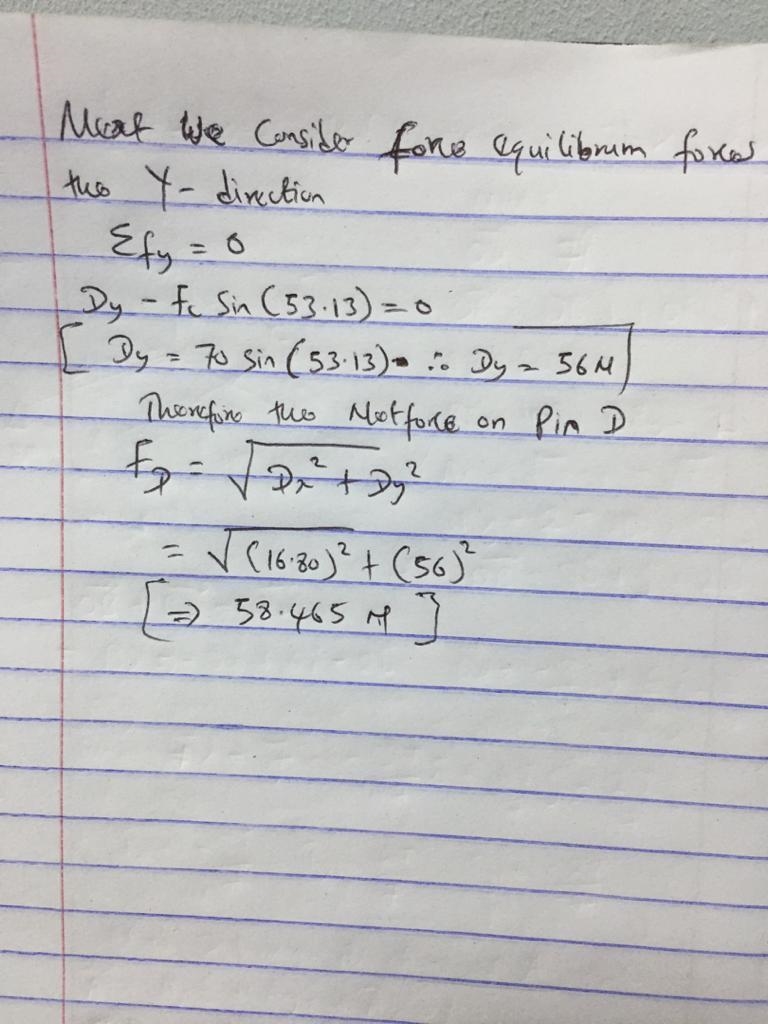 Next We Consider force equilibrum forces
the Y-direction
Σfy = 0
Dy - Fc Sin (53.13) = 0
[ Dy = 70 sin (53.13) ∴ Dy = 56N ]
Therefore the Net force on Pin D
FD = √Dx² + Dy²
= √(16.80)² + (56)²
[⇒ 58.465 N ]